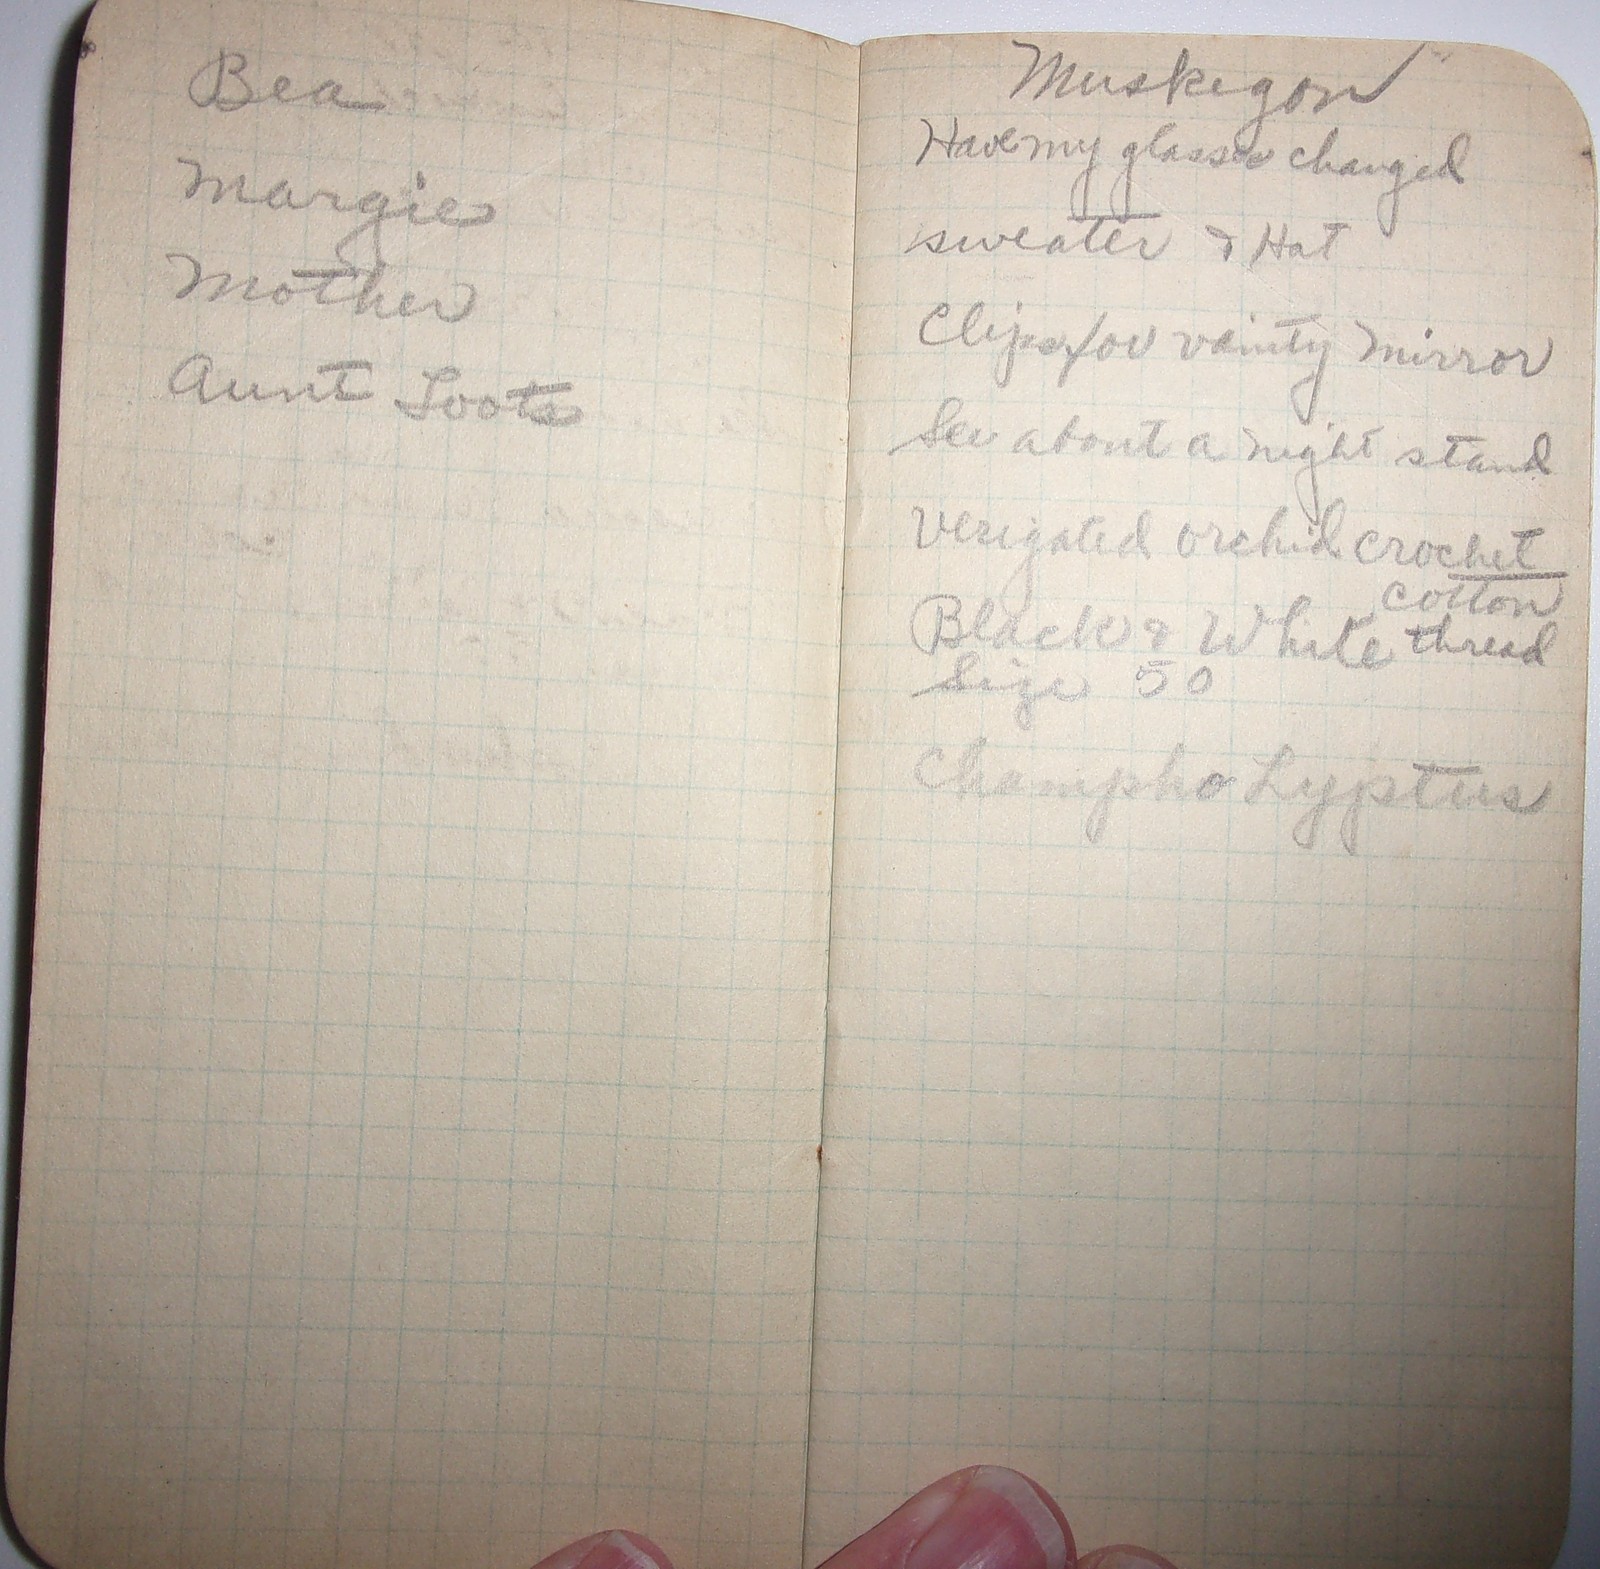 Bea
Margie
Mother
Aunt Toots
Muskegon
Have my glasses changed
sweater & Hat
Clips for vanity mirror
See about a night stand
Verigated orchid crochet
cotton
Black & White thread
Size 50
Champho Lyptus